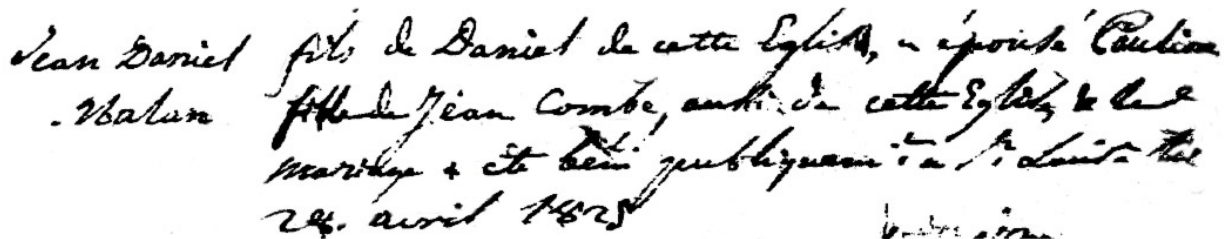 Jean Daniel fils de Daniel de cette Eglise, a épousé Pauline
Malan fille de Jean Combe, aussi de cette Eglise, & le
mariage a été béni publiquement a St. Laurent le
28. avril 1825